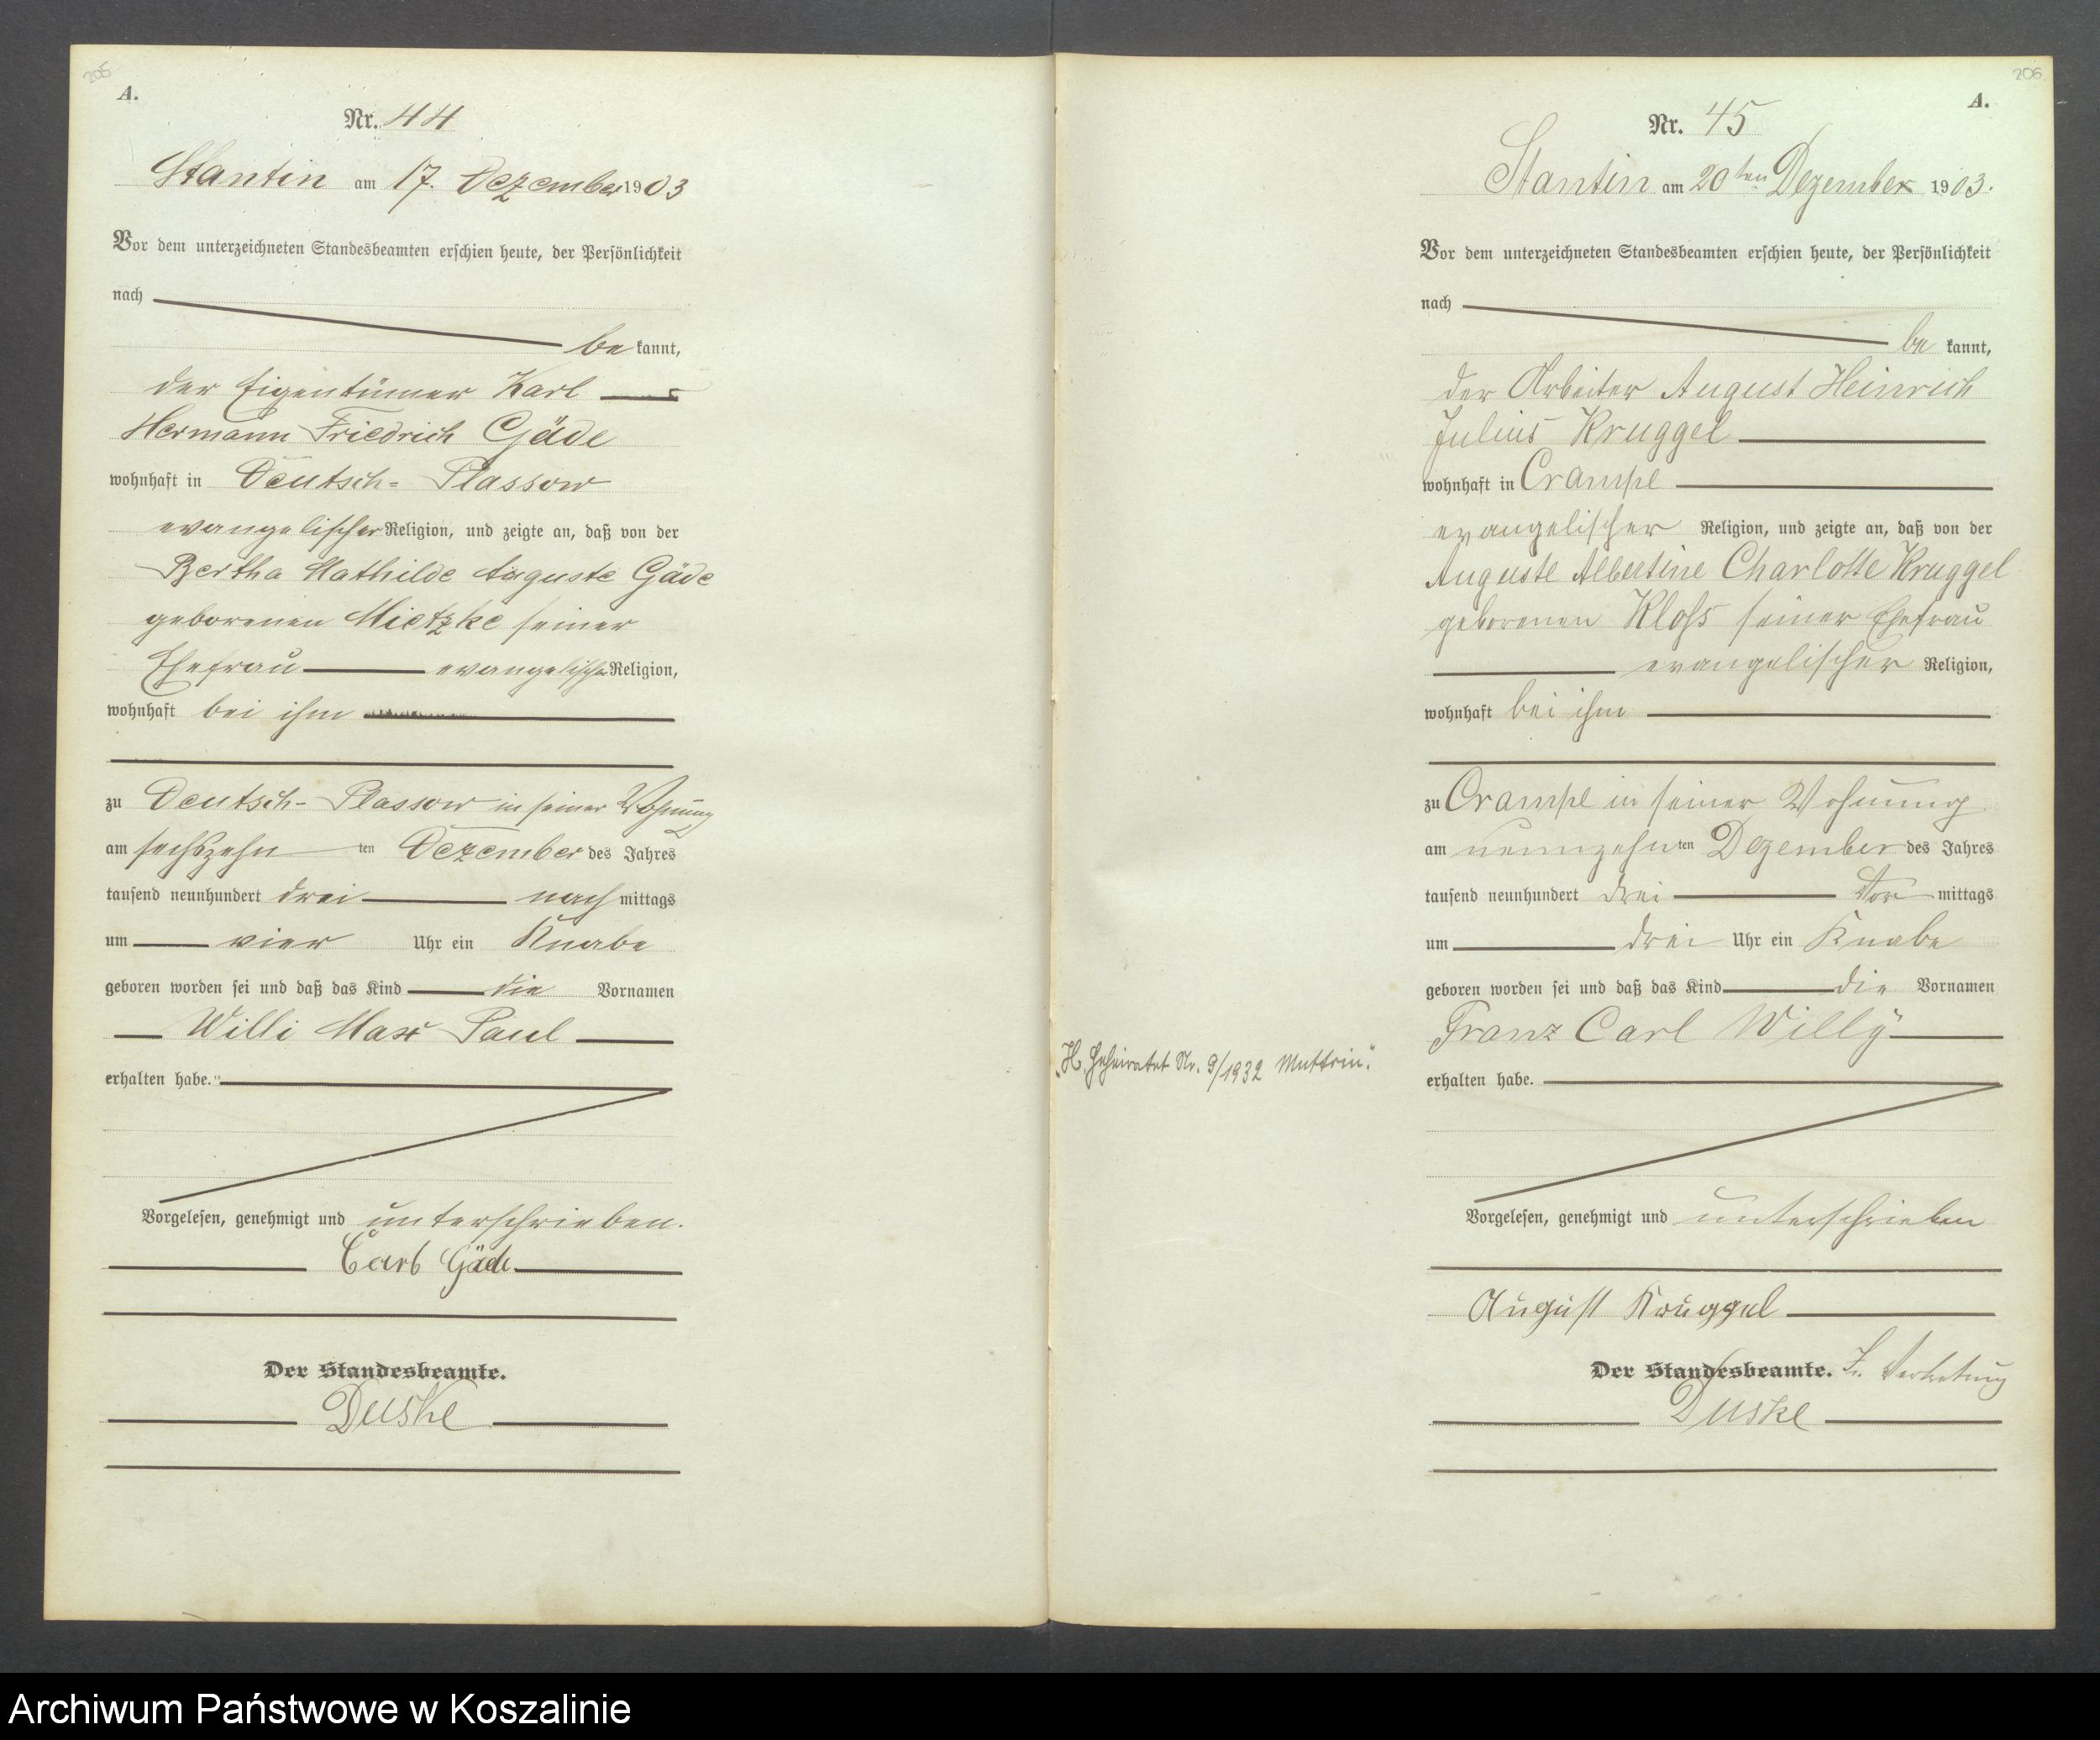 205
A.
Nr. 44
Stantin am 17. Dezember 1903
Vor dem unterzeichneten Standesbeamten erschien heute, der Persönlichkeit
nach
be kannt,
der Eigentümer Karl
Hermann Friedrich Gäde
wohnhaft in Deutsch- Plassow
evangelischer Religion, und zeigte an, daß von der
Bertha Mathilde Auguste Gäde
geborenen Mietzke seiner
Ehefrau evangelischer Religion,
wohnhaft bei ihm
zu Deutsch- Plassow in seiner Wohnung
am sechszehn ten Dezember des Jahres
tausend neunhundert drei nach mittags
um vier Uhr ein Knabe
geboren worden sei und daß das Kind die Vornamen
Willi Max Paul
erhalten habe."
Vorgelesen, genehmigt und unterschrieben.
Carl Gäde
Der Standesbeamte.
Duske
206
A.
Nr. 45
Stantin am 20ten Dezember 1903.
Vor dem unterzeichneten Standesbeamten erschien heute, der Persönlichkeit
nach
be kannt,
der Arbeiter August Heinrich
Julius Kruggel
wohnhaft in Crampe
evangelischer Religion, und zeigte an, daß von der
Auguste Albertine Charlotte Kruggel
geborenen Kloß seiner Ehefrau
evangelischer Religion,
wohnhaft bei ihm
zu Crampe in seiner Wohnung
am neunzehn ten Dezember des Jahres
tausend neunhundert drei Vor mittags
um drei Uhr ein Knabe
geboren worden sei und daß das Kind die Vornamen
Franz Carl Willy
„H. Geheiratet Nr. 9/1932 Muttrin."
erhalten habe.
Vorgelesen, genehmigt und unterschrieben
August Kruggel
Der Standesbeamte. In Vertretung
Duske
Archiwum Państwowe w Koszalinie